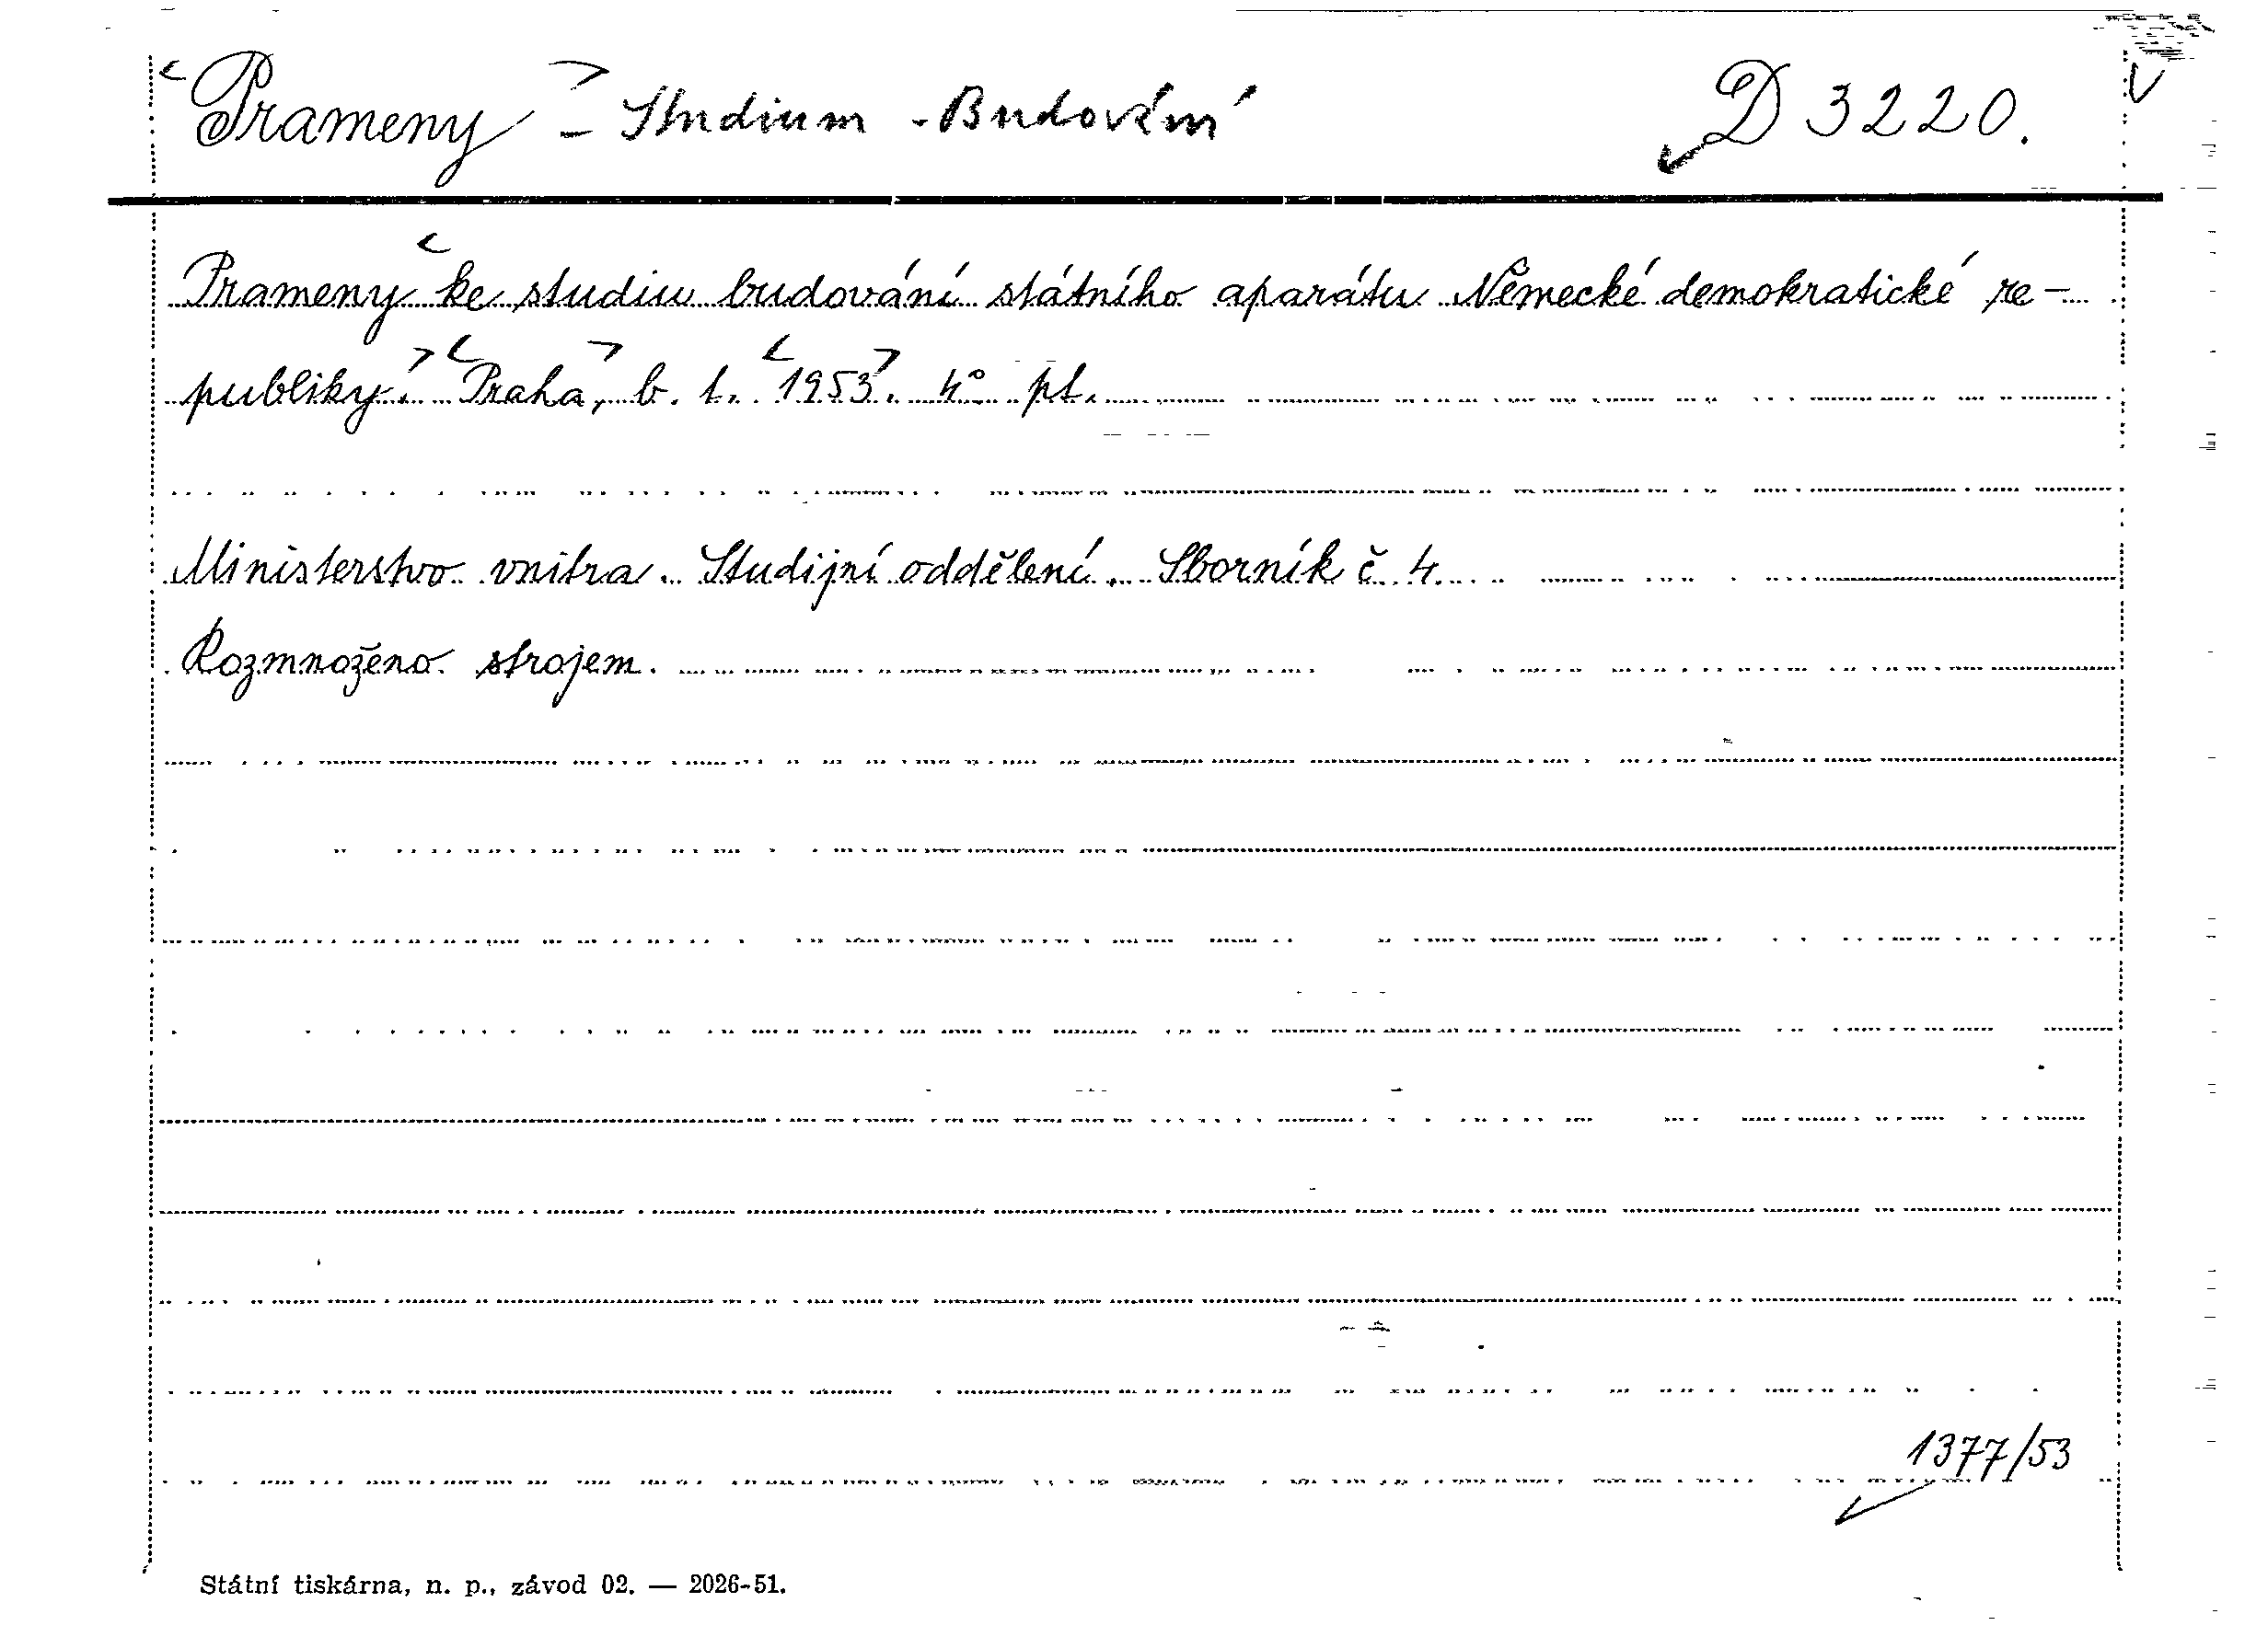 Prameny - Studium - Budování D 3220.
Prameny ke studiu budování státního aparátu Německé demokratické re-
publiky. Praha, b. t. 1953. 4° pt.
Ministerstvo vnitra. Studijní oddělení. Sborník č 4.
Rozmnoženo strojem.
1377/53
Státní tiskárna, n. p., závod 02. — 2026-51.